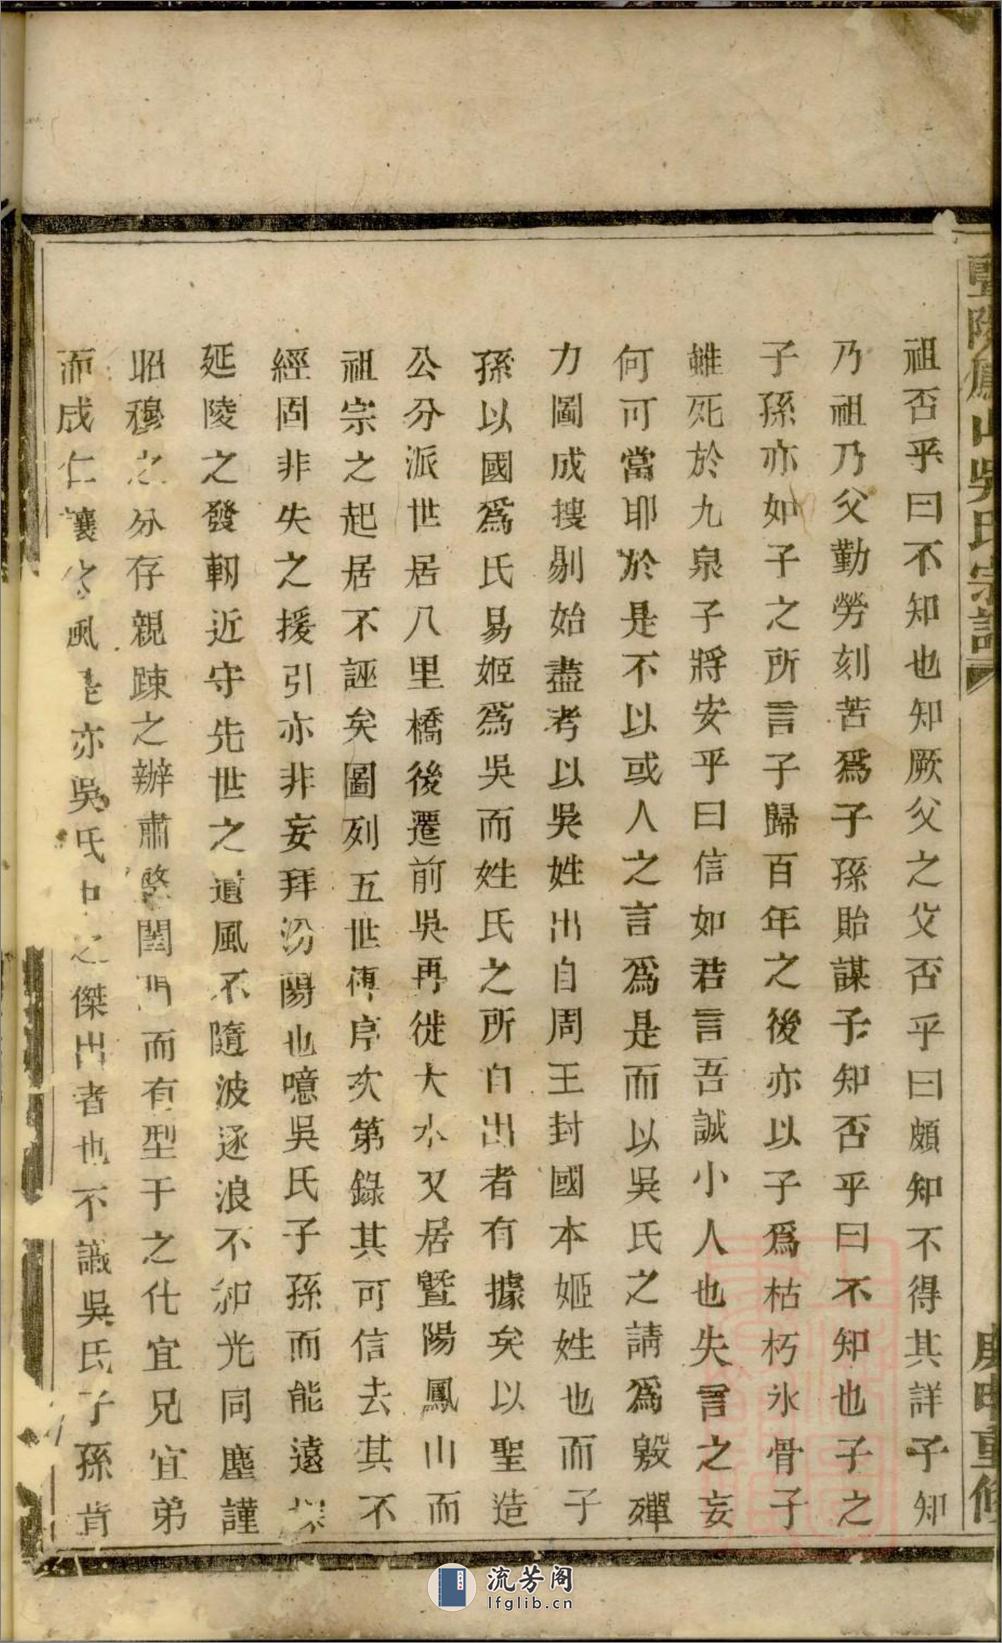 暨陽鳳山吳氏宗譜
庚申重修
祖否乎曰不知也知厥父之父否乎曰頗知不得其詳子知
乃祖乃父勤勞刻苦爲子孫貽謀子知否乎曰不知也子之
子孫亦如子之所言子歸百年之後亦以子爲枯朽氷骨子
雖死於九泉子將安乎曰信如君言吾誠小人也失言之妄
何可當耶於是不以或人之言爲是而以吳氏之請爲毅殫
力圖成搜剔始盡考以吳姓出自周王封國本姬姓也而子
孫以國爲氏易姬爲吳而姓氏之所自出者有據矣以聖造
公分派世居八里橋後遷前吳再徙大水又居暨陽鳳山而
祖宗之起居不誣矣圖列五世傳序次第錄其可信去其不
經固非失之援引亦非妄拜汾陽也噫吳氏子孫而能遠
延陵之發軔近守先世之遺風不隨波逐浪不和光同塵謹
昭穆之分存親踈之辦肅整閨門而有型于之化宜兄宜弟
而成仁讓之風是亦吳氏中之傑出者也不識吳氏子孫肯
流芳阁
lfglib.cn